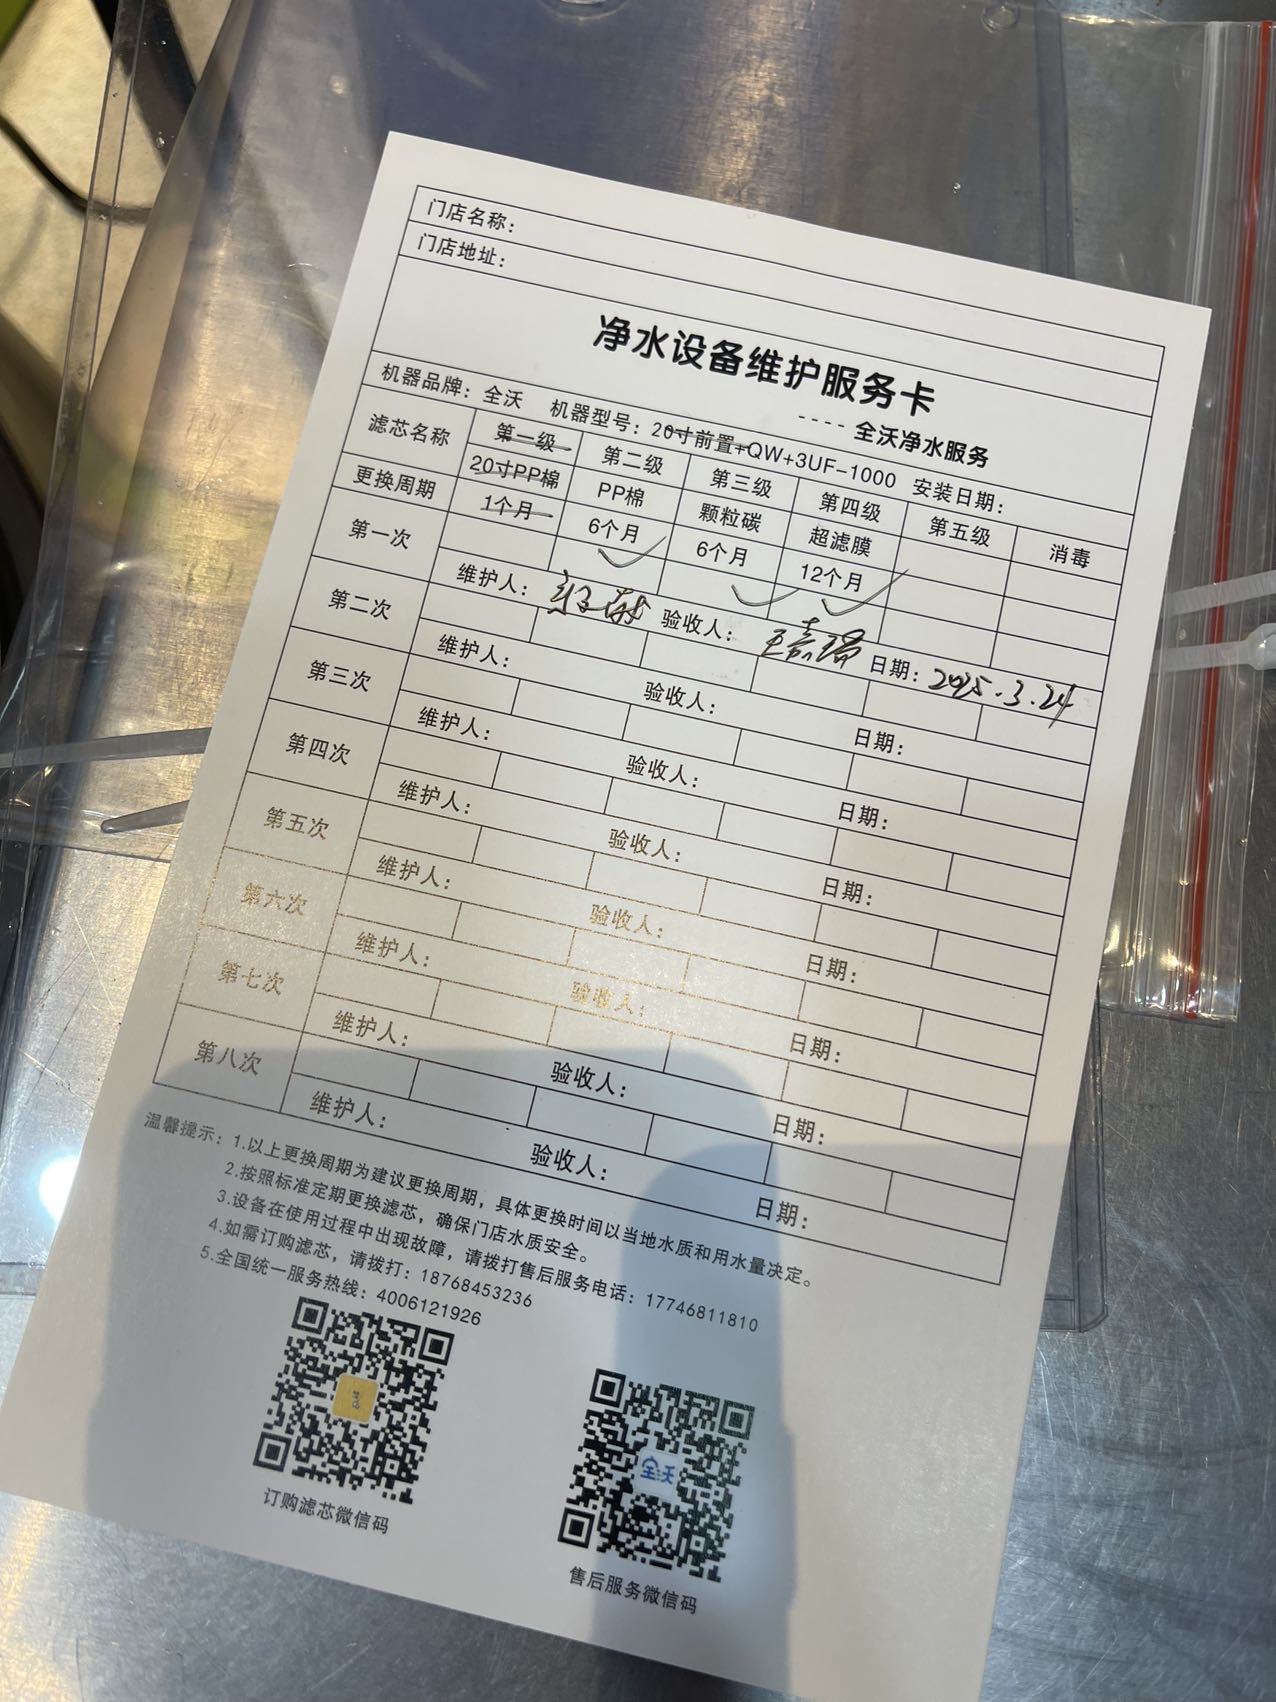 门店名称：
门店地址：
净水设备维护服务卡
---- 全沃净水服务
机器品牌：全沃 机器型号：20寸前置+QW+3UF-1000 安装日期：
滤芯名称 第一级 第二级 第三级 第四级 第五级 消毒
20寸PP棉 PP棉 颗粒碳 超滤膜
更换周期 1个月 6个月 6个月 12个月
第一次 ✓ ✓ ✓
维护人： 验收人：王嘉瑞 日期：2025.3.24
第二次
维护人： 验收人： 日期：
第三次
维护人： 验收人： 日期：
第四次
维护人： 验收人： 日期：
第五次
维护人： 验收人： 日期：
第六次
维护人： 验收人： 日期：
第七次
维护人： 验收人： 日期：
第八次
维护人： 验收人： 日期：
温馨提示：1.以上更换周期为建议更换周期，具体更换时间以当地水质和用水量决定。
2.按照标准定期更换滤芯，确保门店水质安全。
3.设备在使用过程中出现故障，请拨打售后服务电话：17746811810
4.如需订购滤芯，请拨打：18768453236
5.全国统一服务热线：4006121926
全沃
订购滤芯微信码
售后服务微信码